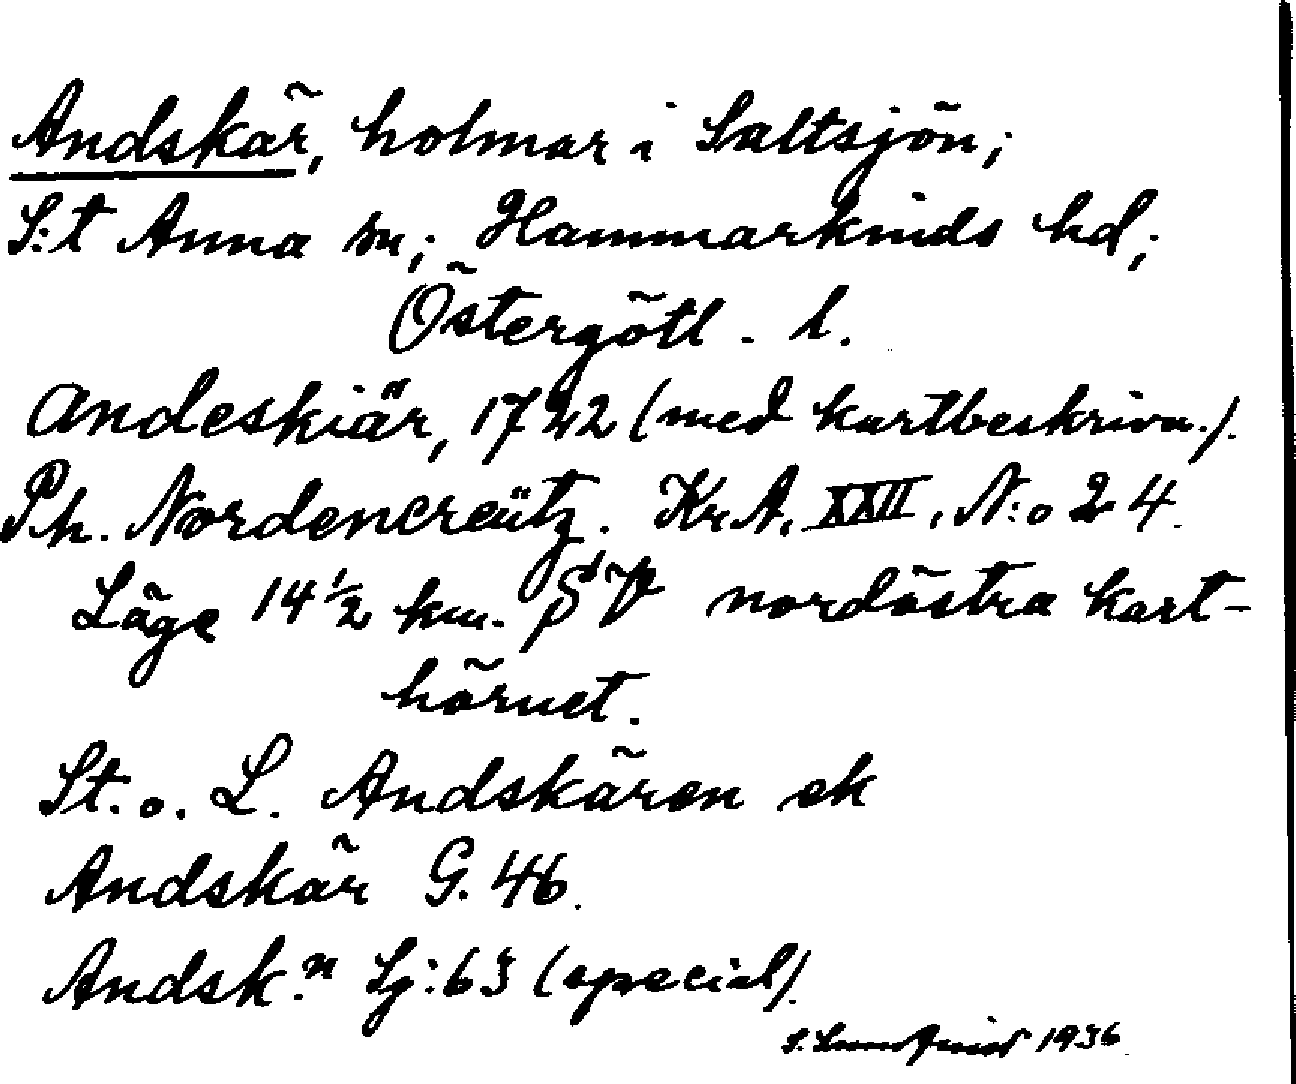 Andskär, holmar i Saltsjön;
S:t Anna sn; Hammarkinds hd;
Östergötl. l.
Andeskiär, 1742 (med kartbeskrivn.).
Ph. Nordencreütz. Kr.A. XXII, N:o 24.
Läge 14 1/2 km. SV nordöstra kart-
hörnet.
St. o. L. Andskären ek
Andskär G. 46.
Andsk:n Sj:63 (special).
S. Lundquist 1936